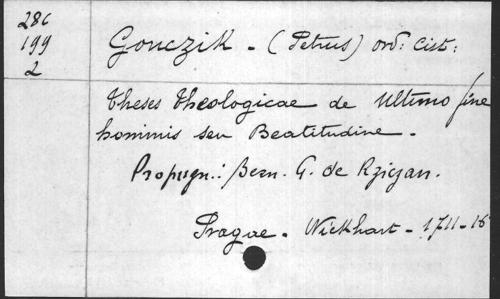 286
199
2
Gonczik - (Petrus) ord: Cist:
Theses Theologicae de Ultimo fine
hominis seu Beatitudine -
Propugn.: Bern. G. de Rziczan.
Pragae - Wickhart - 1711 - 16°